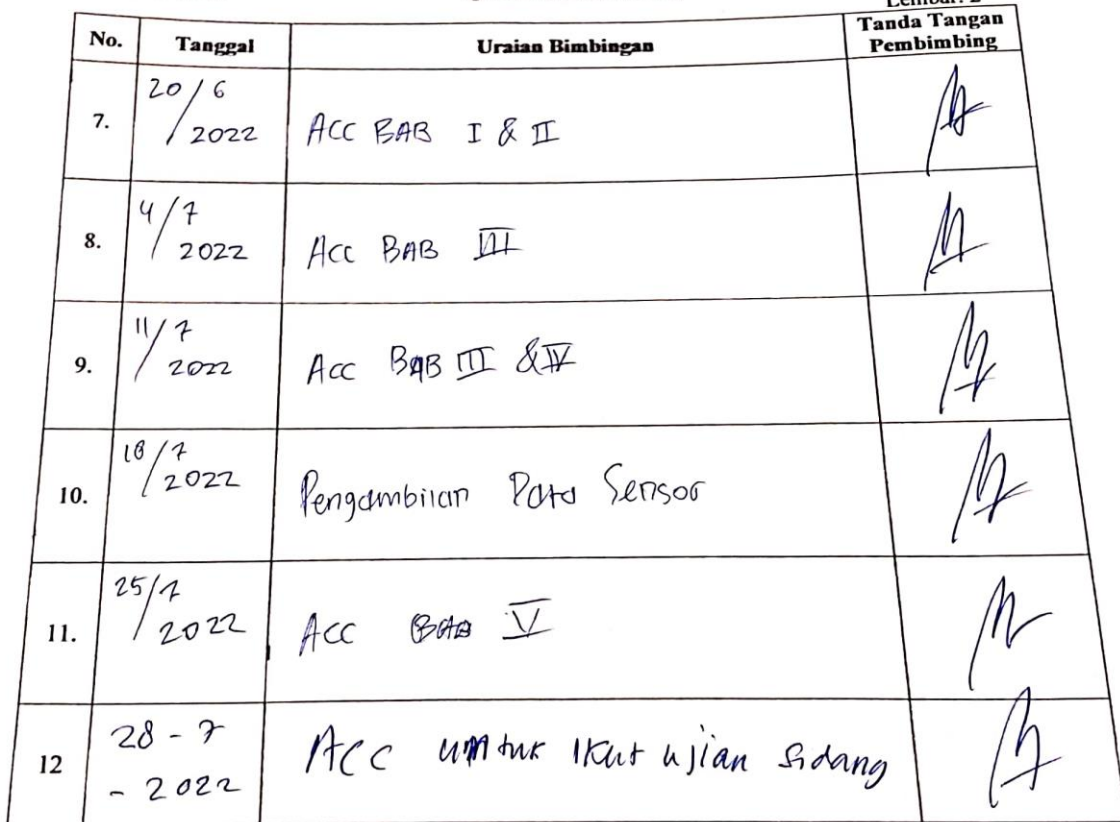 No. Tanggal Uraian Bimbingan Tanda Tangan Pembimbing
7. 20/6/2022 ACC BAB I & II
8. 4/7/2022 Acc BAB III
9. 11/7/2022 Acc BAB III & IV
10. 18/7/2022 Pengambilan Data Sensor
11. 25/7/2022 Acc BAB V
12 28-7-2022 Acc untuk Ikut ujian Sidang